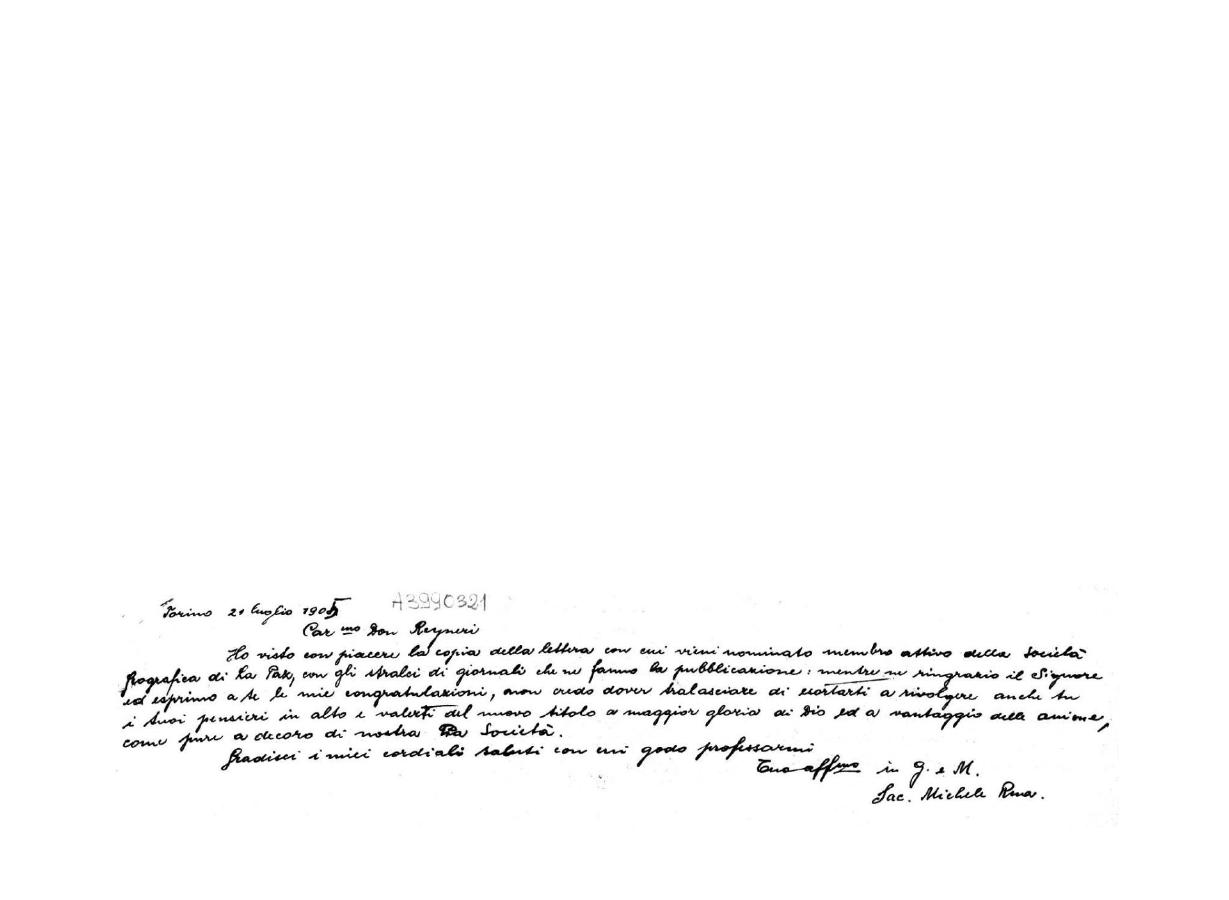 Torino 21 luglio 1905 A3990321
Car mo Don Reyneri
Ho visto con piacere la copia della lettera con cui vieni nominato membro attivo della Società
fografica di La Paz, con gli stralci di giornali che ne fanno la pubblicazione: mentre ne ringrazio il Signore
ed esprimo a te le mie congratulazioni, non credo dover tralasciare di esortarti a rivolgere anche tu
i tuoi pensieri in alto e valerti del nuovo titolo a maggior gloria di Dio ed a vantaggio delle anime,
come pure a decoro di nostra Pia Società.
Gradisci i miei cordiali saluti con cui godo professarmi
Tuo aff.mo in G. e M.
Sac. Michele Rua.